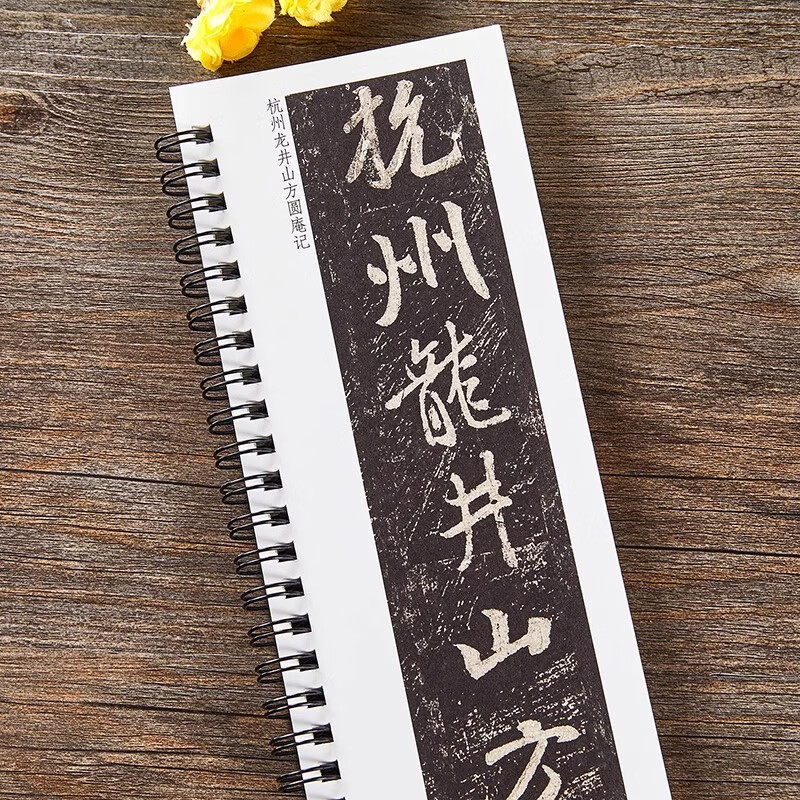 杭州龙井山方圆庵记
杭州龍井山方